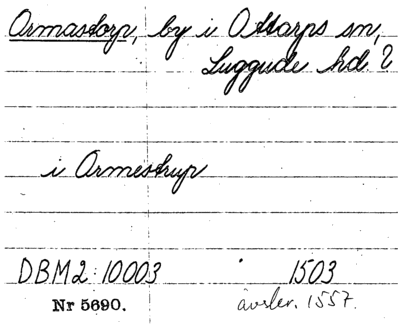 Ormastorp, by i Ottarps sn,
Luggude hd. ?
i Ormestrup
DBM2:10003 1503
Nr 5690. avskr. 1557.